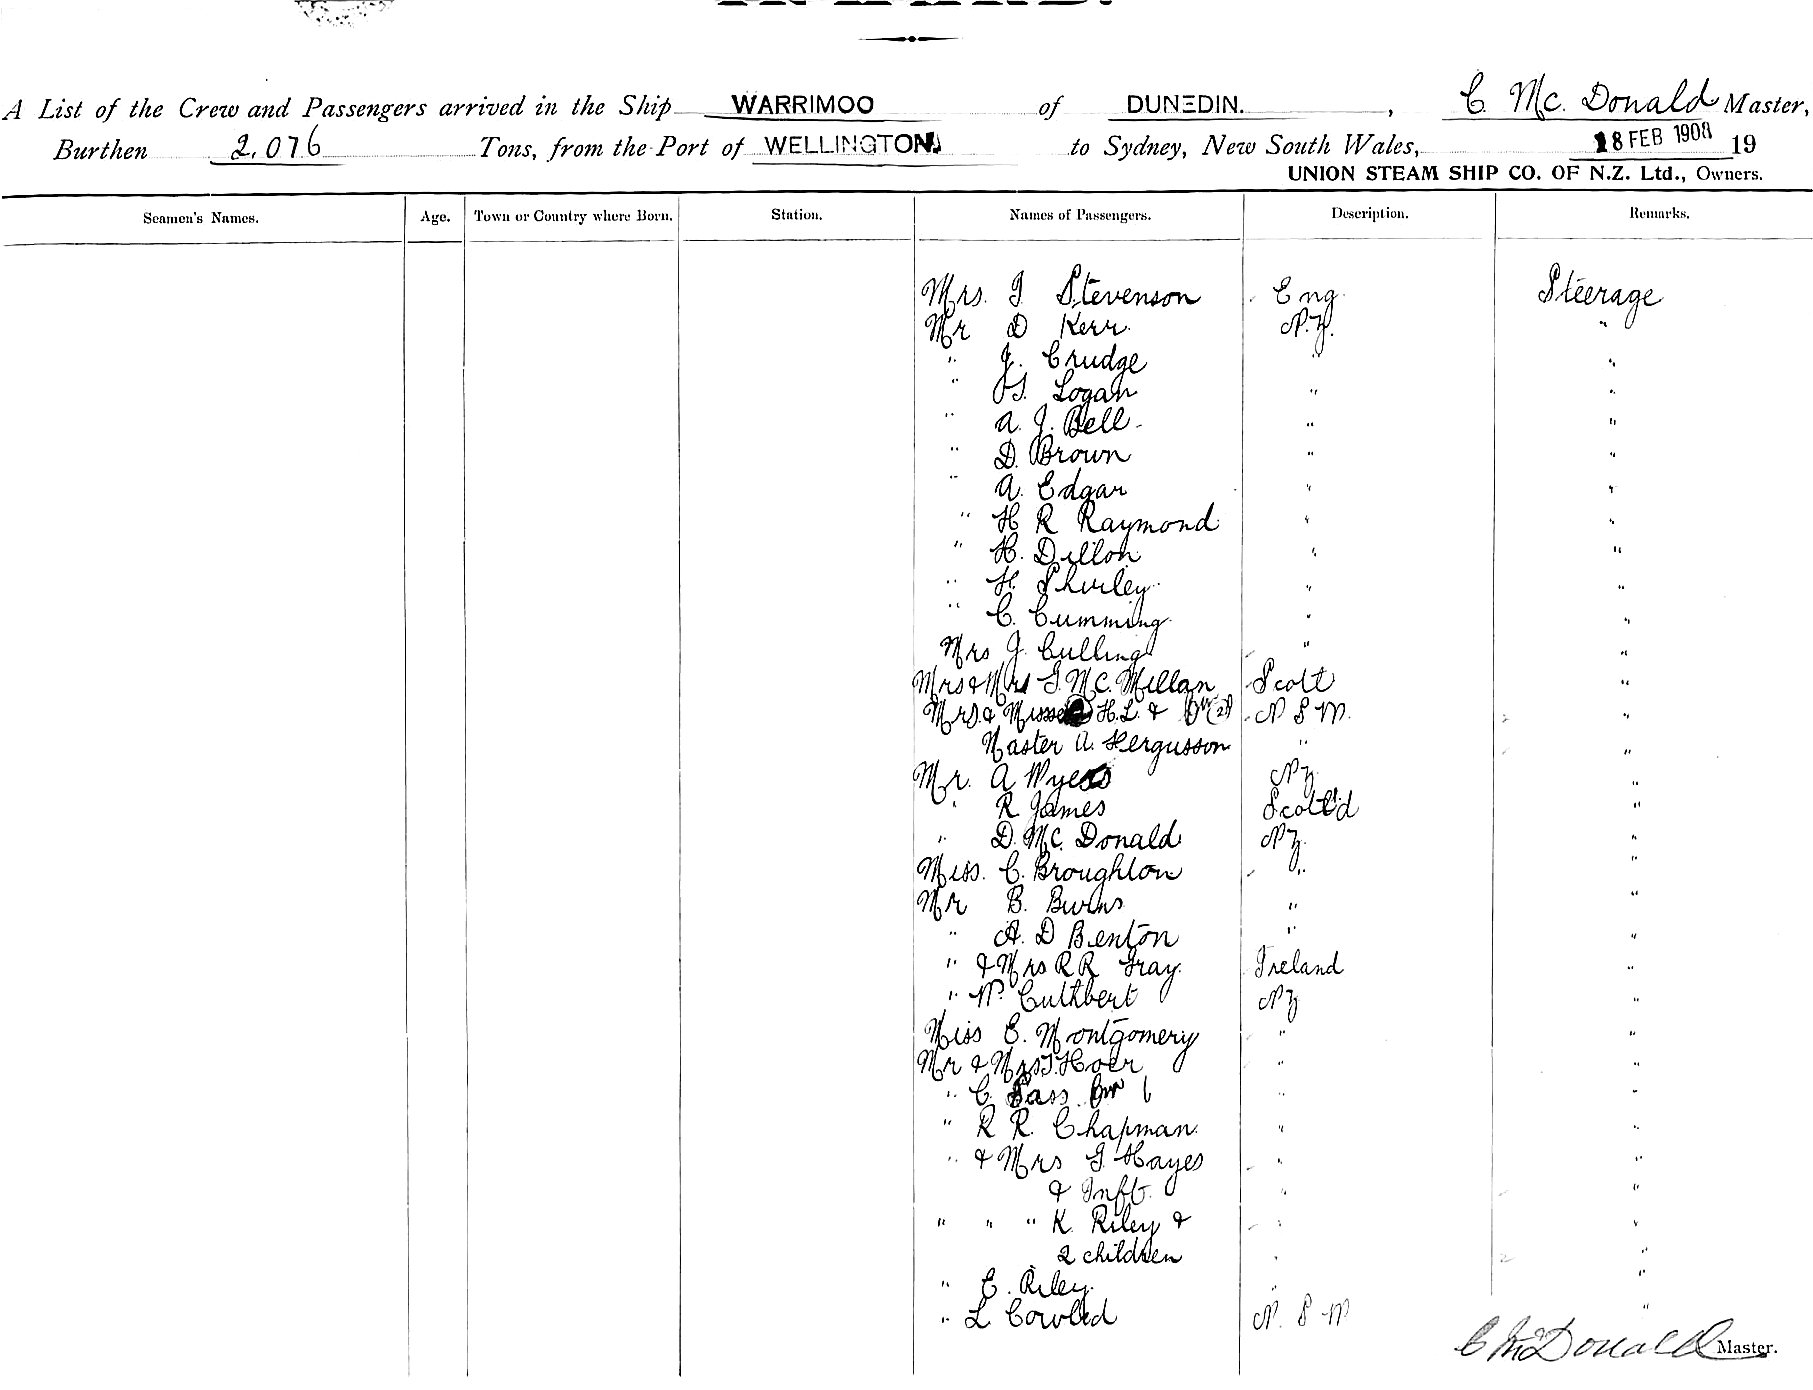 A List of the Crew and Passengers arrived in the Ship WARRIMOO of DUNEDIN. , C Mc. Donald Master,
Burthen 2,076 Tons, from the Port of WELLINGTON to Sydney, New South Wales, 18 FEB 1908 19
UNION STEAM SHIP CO. OF N.Z. Ltd., Owners.
Seamen's Names. Age. Town or Country where Born. Station. Names of Passengers. Description. Remarks.
Mrs. J Stevenson Eng. Steerage
Mr D Kerr. N.Z. "
" J. Crudge " "
" Logan " "
" A. J. Bell - " "
" D. Brown " "
" A. Edgar " "
" H R Raymond " "
" H. Dillon " "
" H. Shirley " "
" C. Cumming " "
Mrs J Culling " "
Mrs & Mrs Mc. Millan Scott "
Mrs. & H.L. & (2) N S W. "
Master A. Fergusson " "
Mr. A Wyess NZ "
" R James Scotl'd "
" D. Mc. Donald NZ. "
Miss. C. Broughton " "
Mr B. Burns " "
" A. D Benton " "
" & Mrs R R Gray. Ireland "
" W. Cuthbert NZ "
Miss E. Montgomery " "
Mr & Mrs T. Hoer " "
" C. Sass " "
" R R. Chapman. " "
" & Mrs J. Hayes " "
& Inft. " "
" " " K. Riley & " "
2 children " "
" E. Riley. " "
" L Cowled N. S W "
C McDonald Master.